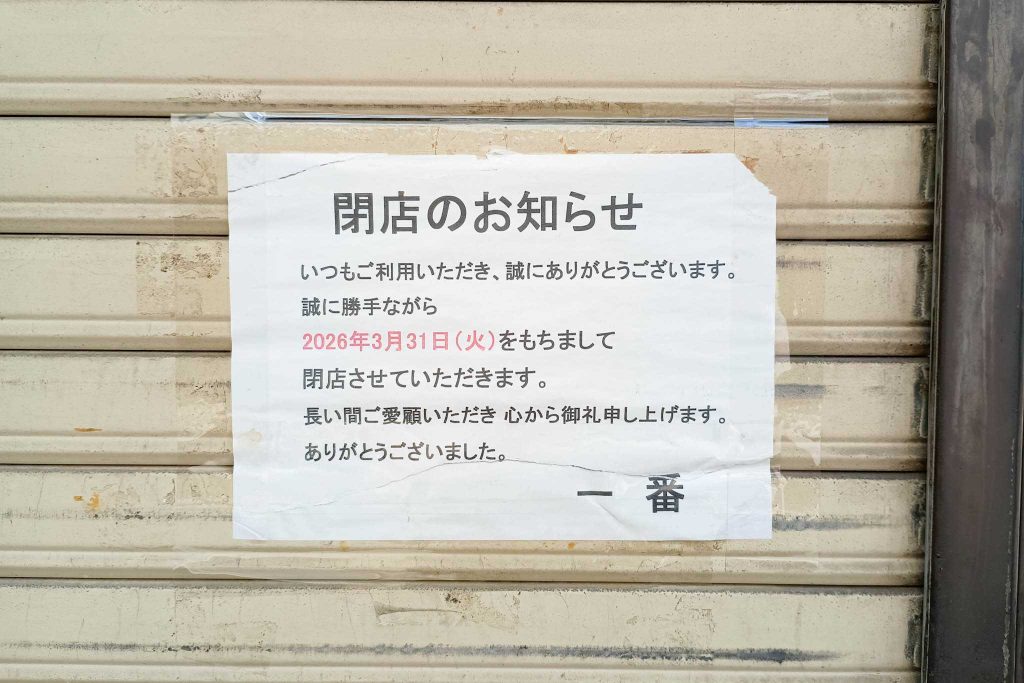 閉店のお知らせ
いつもご利用いただき、誠にありがとうございます。
誠に勝手ながら
2026年3月31日(火)をもちまして
閉店させていただきます。
長い間ご愛顧いただき 心から御礼申し上げます。
ありがとうございました。
一 番